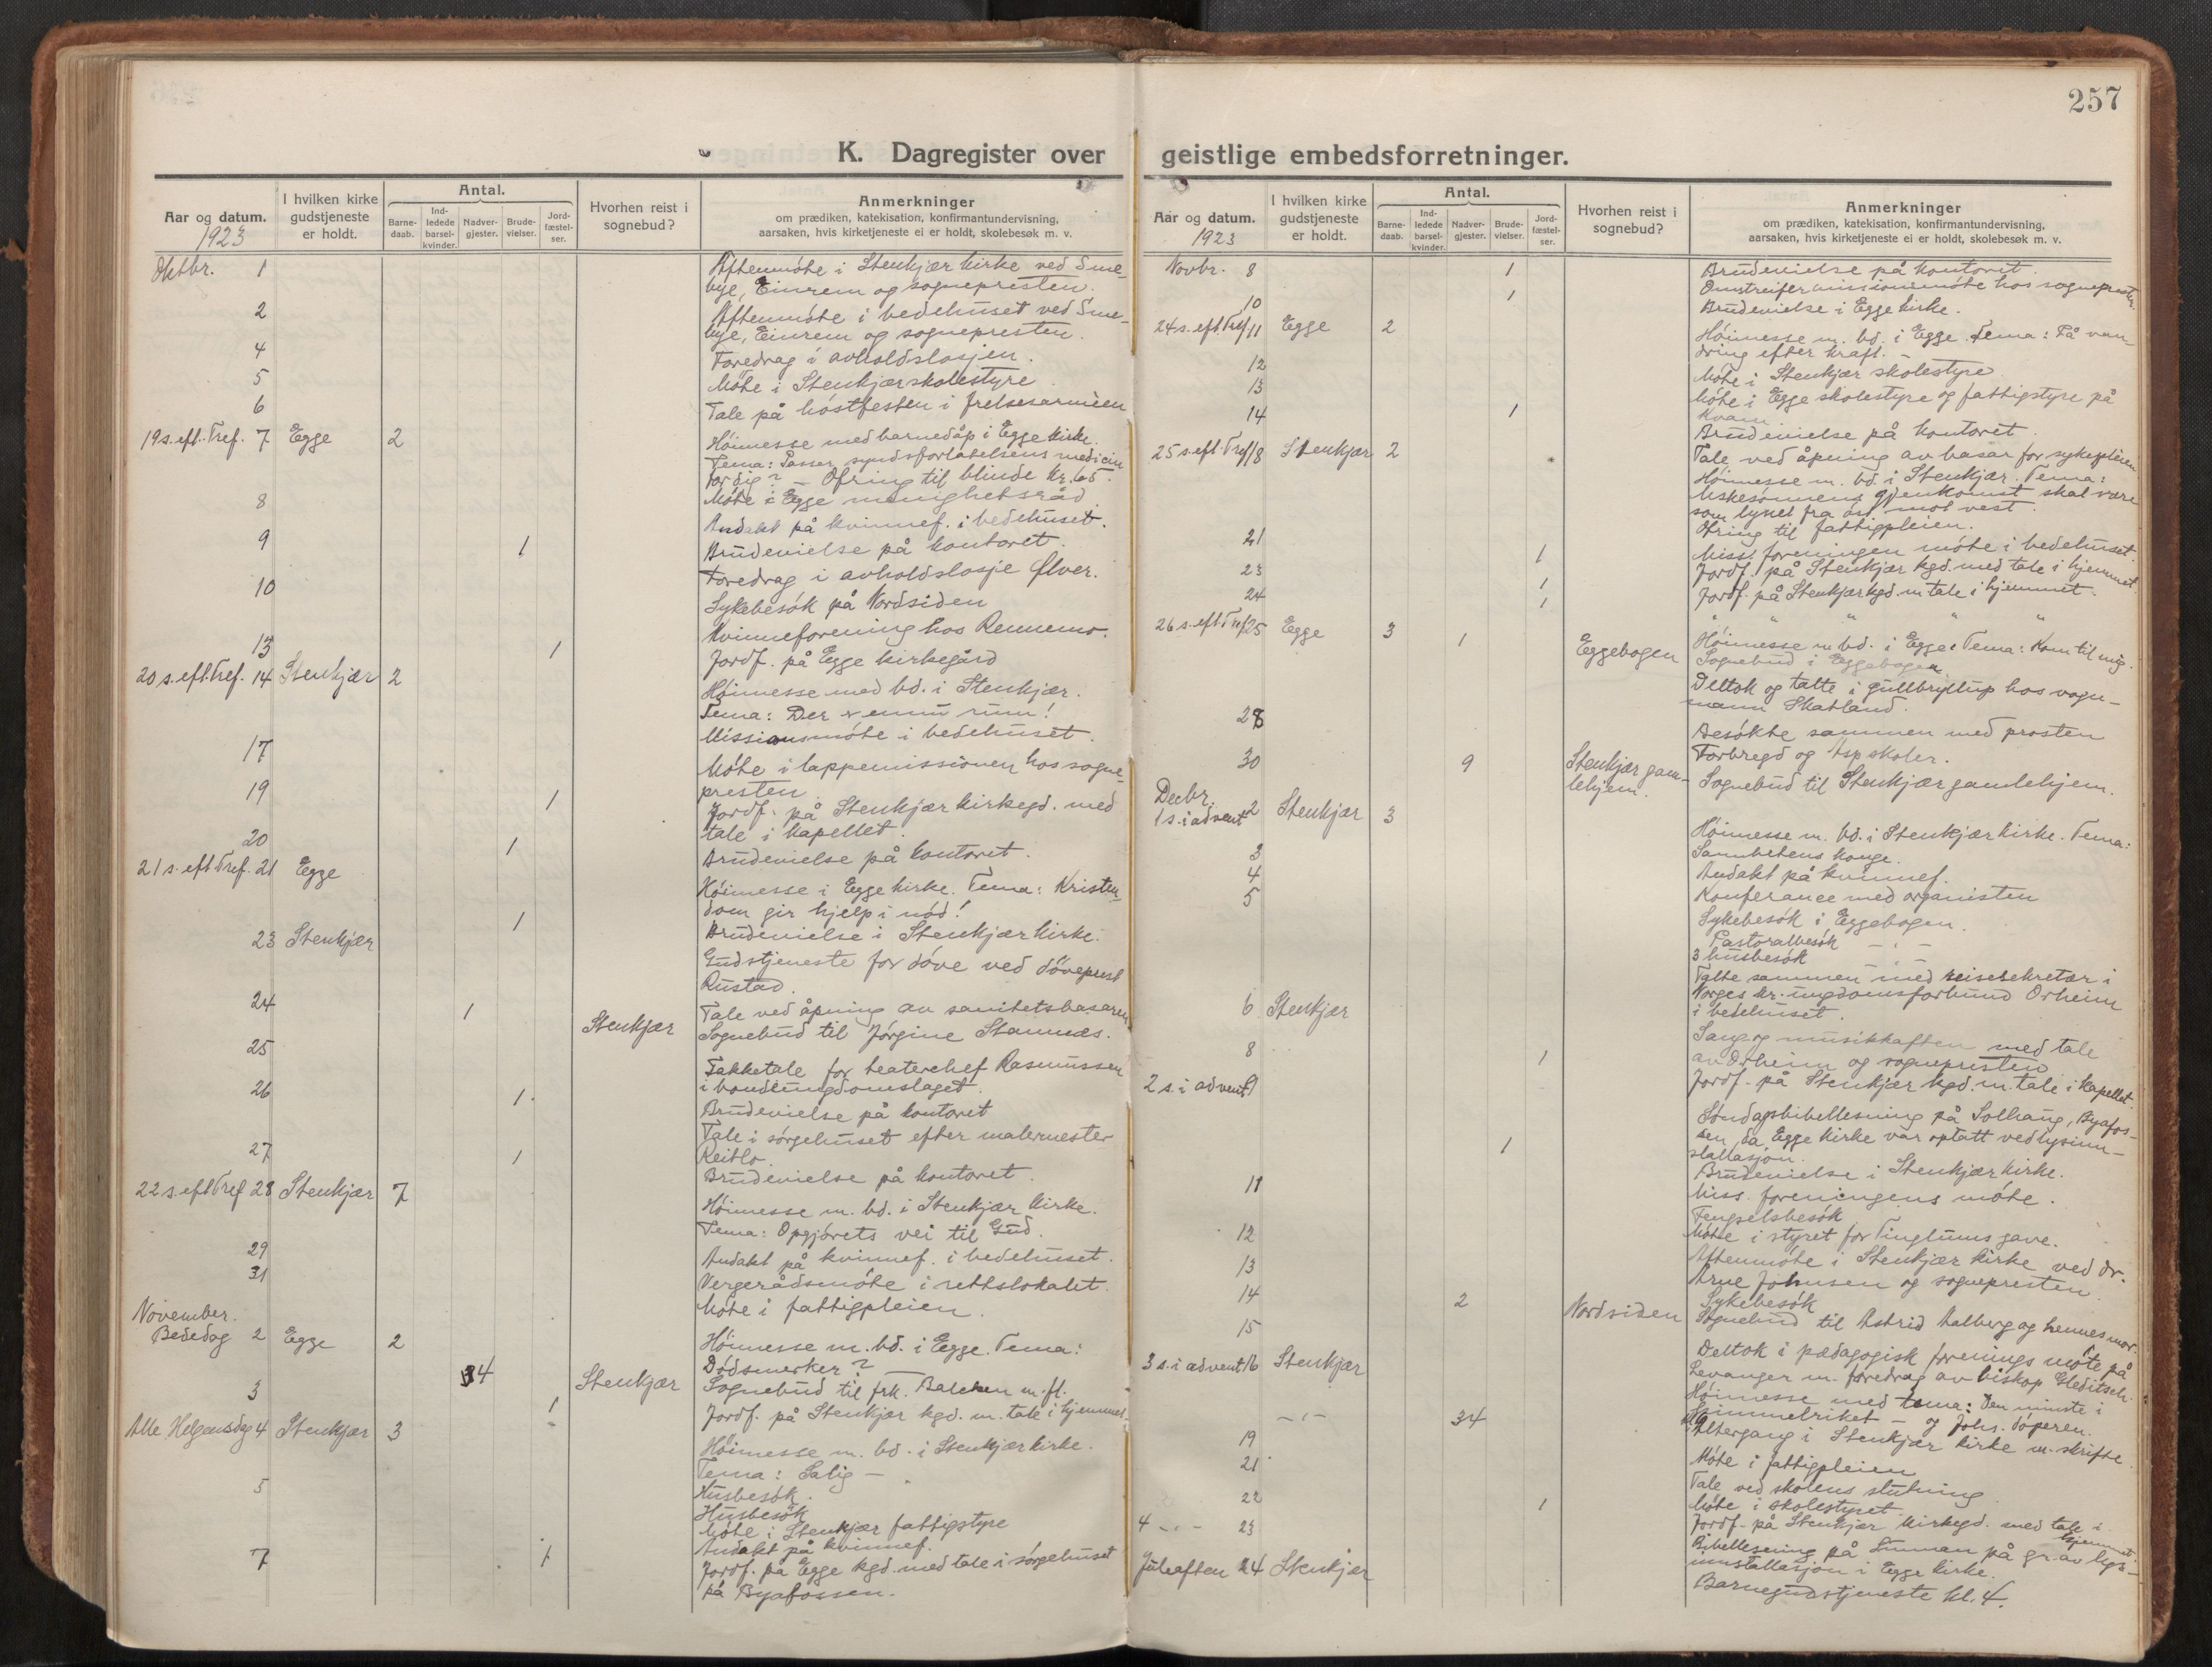 257
K. Dagregister over geistlige embedsforretninger.
Aar og datum.
1923
I hvilken kirke gudstjeneste er holdt.
Antal.
Barne-daab.
Ind-ledede barsel-kvinder.
Nadver-gjester.
Brude-vielser.
Jord-fæstel-ser.
Hvorhen reist i sognebud?
Anmerkninger
om prædiken, katekisation, konfirmantundervisning,
aarsaken, hvis kirketjeneste ei er holdt, skolebesøk m. v.
Oktbr. 1 Aftenmöte i Stenkjær kirke ved Sme-
bye, Einrem og sognepresten.
2 Aftenmöte i bedehuset ved Sme-
bye, Einrem og sognepresten.
4 Foredrag i avholdslosjen.
5 Möte i Stenkjær skolestyre
6 Tale på höstfesten i frelsesarmeen
19 s. eft. Tref. 7 Egge 2 Höimesse med barnedåp i Egge kirke.
Tema: Passer syndsforlatelsens medicin
for dig? – Ofring til blinde kr. 65.
8 Möte i Egge menighetsråd
Andakt på kvinnef. i bedehuset.
9 1 Brudevielse på kontoret.
Foredrag i avholdslosje Ølver.
10 Sykebesök på Nordsiden
Kvinneforening hos Rennemo.
13 1 Jordf. på Egge kirkegård
20 s. eft. Tref. 14 Stenkjær 2 Höimesse med bd. i Stenkjær.
Tema: Der er ennu rum!
Missionsmöte i bedehuset.
17 Möte i lappemissionen hos sogne-
presten
19 1 Jordf. på Stenkjær kirkegd. med
tale i kapellet.
20 1 Brudevielse på kontoret.
21 s. eft Tref. 21 Egge Höimesse i Egge kirke. Tema: Kristen-
dom gir hjelp i nöd!
1 Brudevielse i Stenkjær kirke.
23 Stenkjær Gudstjeneste for döve ved döveprest
Rustad.
24 Tale ved åpning av sanitetsbasaren
1 Stenkjær Sognebud til Jörgine Stamnæs.
25 Takketale for teaterchef Rasmussen
i bondeungdomslaget.
26 1 Brudevielse på kontoret
Tale i sörgehuset efter malermester
Reitlo
27 1 Brudevielse på kontoret.
22 s. eft Tref 28 Stenkjær 7 Höimesse m. bd. i Stenkjær kirke.
Tema: Opgjörets vei til Gud.
29 Andakt på kvinnef. i bedehuset.
31 Vergerådsmöte i rettslokalet.
Möte i fattigpleien.
November.
Bededag 2 Egge 2 Höimesse m. bd. i Egge. Tema:
Dödsmerker?
34 Stenkjær Sognebud til frk. Balchen m. fl.
3 1 Jordf. på Stenkjær kgd. m. tale i hjemmet.
Alle Helgensdag 4 Stenkjær 3 Höimesse m. bd. i Stenkjær kirke.
Tema: Salig –
5 Husbesök.
Husbesök
Möte i Stenkjær fattigstyre
Andakt på kvinnef.
7 1 Jordf. på Egge kgd. med tale i sörgehuset
på Byafossen.
Aar og datum.
1923
I hvilken kirke gudstjeneste er holdt.
Antal.
Barne-daab.
Ind-ledede barsel-kvinder.
Nadver-gjester.
Brude-vielser.
Jord-fæstel-ser.
Hvorhen reist i sognebud?
Anmerkninger
om prædiken, katekisation, konfirmantundervisning,
aarsaken, hvis kirketjeneste ei er holdt, skolebesøk m. v.
Novbr. 8 1 Brudevielse på kontoret.
Omstreifermissionsmöte hos sognepresten.
10 1 Brudevielse i Egge kirke.
24 s. eft. Tref 11 Egge 2 Höimesse m. bd. i Egge. Tema: På van-
dring efter kraft. –
12 Möte i Stenkjær skolestyre
13 Möte i Egge skolestyre og fattigstyre på
Kvam
14 1 Brudevielse på kontoret.
Tale ved åpning av basar for sykepleien
25 s. eft. Tref 18 Stenkjær 2 Höimesse m. bd. i Stenkjær. Tema:
Meskesönnens gjenkomst skal være
som lynet fra öst mot vest.
Ofring til fattigpleien.
21 Miss. foreningen möte i bedehuset.
1 Jordf. på Stenkjær kgd. med tale i hjemmet.
23 1 Jordf. på Stenkjær kgd. m tale i hjemmet.
24 1 " " " " "
26 s. eft. Tref 25 Egge 3 Höimesse m bd. i Egge. Tema: Kom til mig.
1 Eggebogen Sognebud i Eggebogen
Deltok og talte i gullbryllup hos vogn-
mann Skatland.
28 Besökte sammen med prosten
Forbregd og Asp skoler.
30 9 Stenkjær gam-
lehjem. Sognebud til Stenkjær gamlehjem.
Decbr.
1 s. i advent 2 Stenkjær 3 Höimesse m. bd. i Stenkjær kirke. Tema:
Sannhetens konge.
3 Andakt på kvinnef.
4 Konferance med organisten
5 Sykebesök i Eggebogen.
Pastoralbesök – " –
3 husbesök – " –
Talte sammen med reisesekretær i
Norges kr. ungdomsforbund Orheim
i bedehuset.
6 Stenkjær Sang og musikkaften med tale
av Orheim og sognepresten
8 1 Jordf. på Stenkjær kgd. m. tale i kapellet.
2 s. i advent 9 Söndagsbibellesning på Solhaug, Byafos-
sen, da Egge kirke var optatt ved lysinn-
stallasjon.
1 Brudevielse i Stenkjær kirke.
11 Miss. foreningens möte.
Fengselsbesök
12 Möte i styret for Tinglums gave.
13 Aftenmöte i Stenkjær kirke ved dr.
Arne Johnsen og sognepresten.
14 Sykebesök
2 Nordsiden Sognebud til Astrid Aalberg og hennes mor.
15 Deltok i pædagogisk forenings möte på
Levanger m. foredrag av biskop Gleditsch.
3 s. i advent 16 Stenkjær Höimesse med tema: Den minste i
himmelriket – og Johs. döperen.
– " – 34 Altergang i Stenkjær kirke m. skrifte.
19 Möte i fattigpleien
21 Tale ved skolens slutning
22 Möte i skolestyret
1 Jordf. på Stenkjær kirkegd. med tale i
hjemmet.
4 – " – 23 Bibellesning på Sunnan på gr. av lys-
innstallasjon i Egge kirke.
Juleaften 24 Stenkjær Barnegudstjeneste kl. 4.